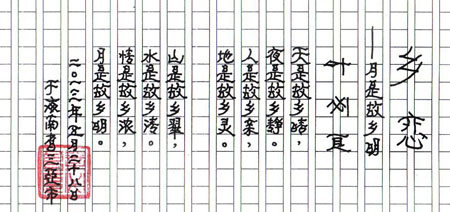 乡恋
——月是故乡明
叶
天是故乡晴，
夜是故乡静。
人是故乡亲，
地是故乡灵。
山是故乡翠，
水是故乡清。
情是故乡浓，
月是故乡明。
月二十八日
于海南省三亚市